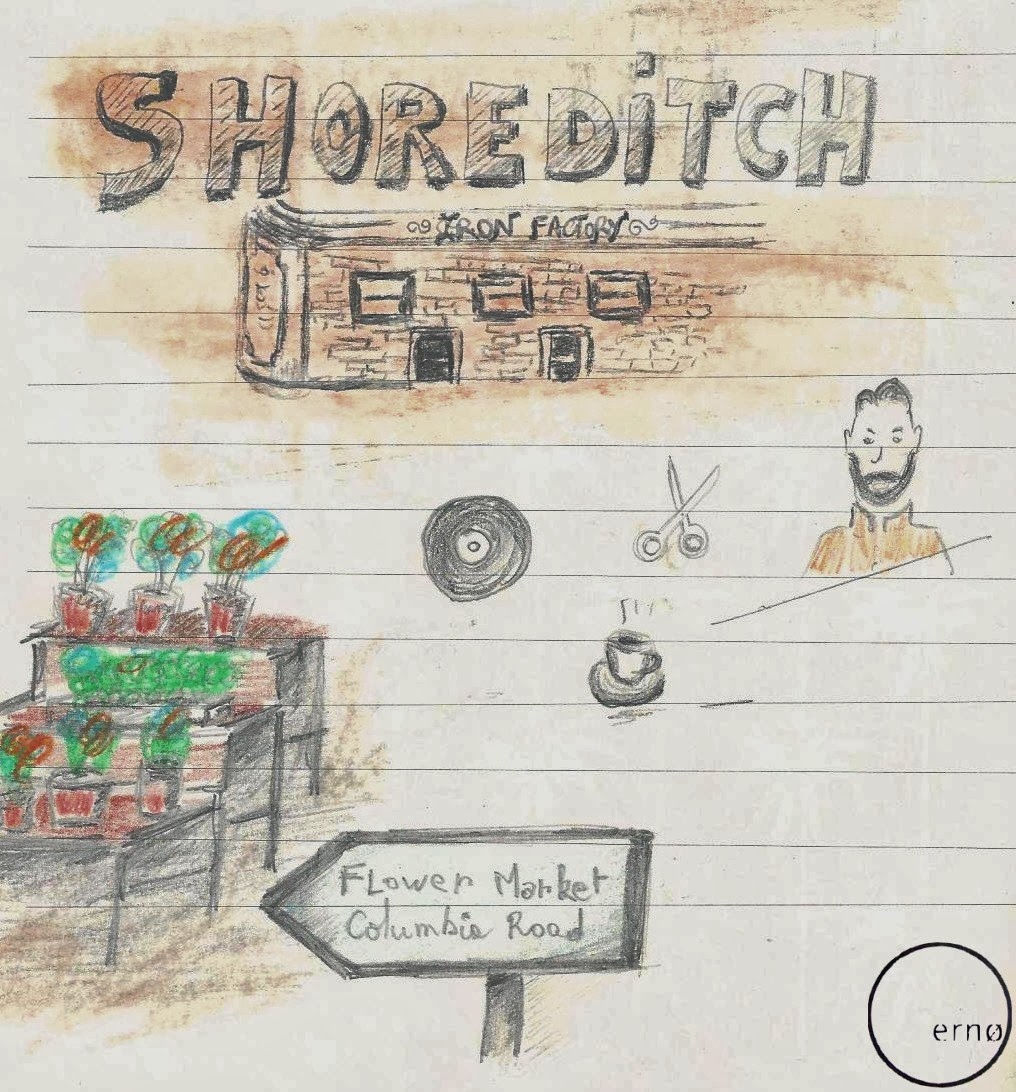 SHOREDiTCH
IRON FACTORY
Flower Market
Columbia Road
ernø